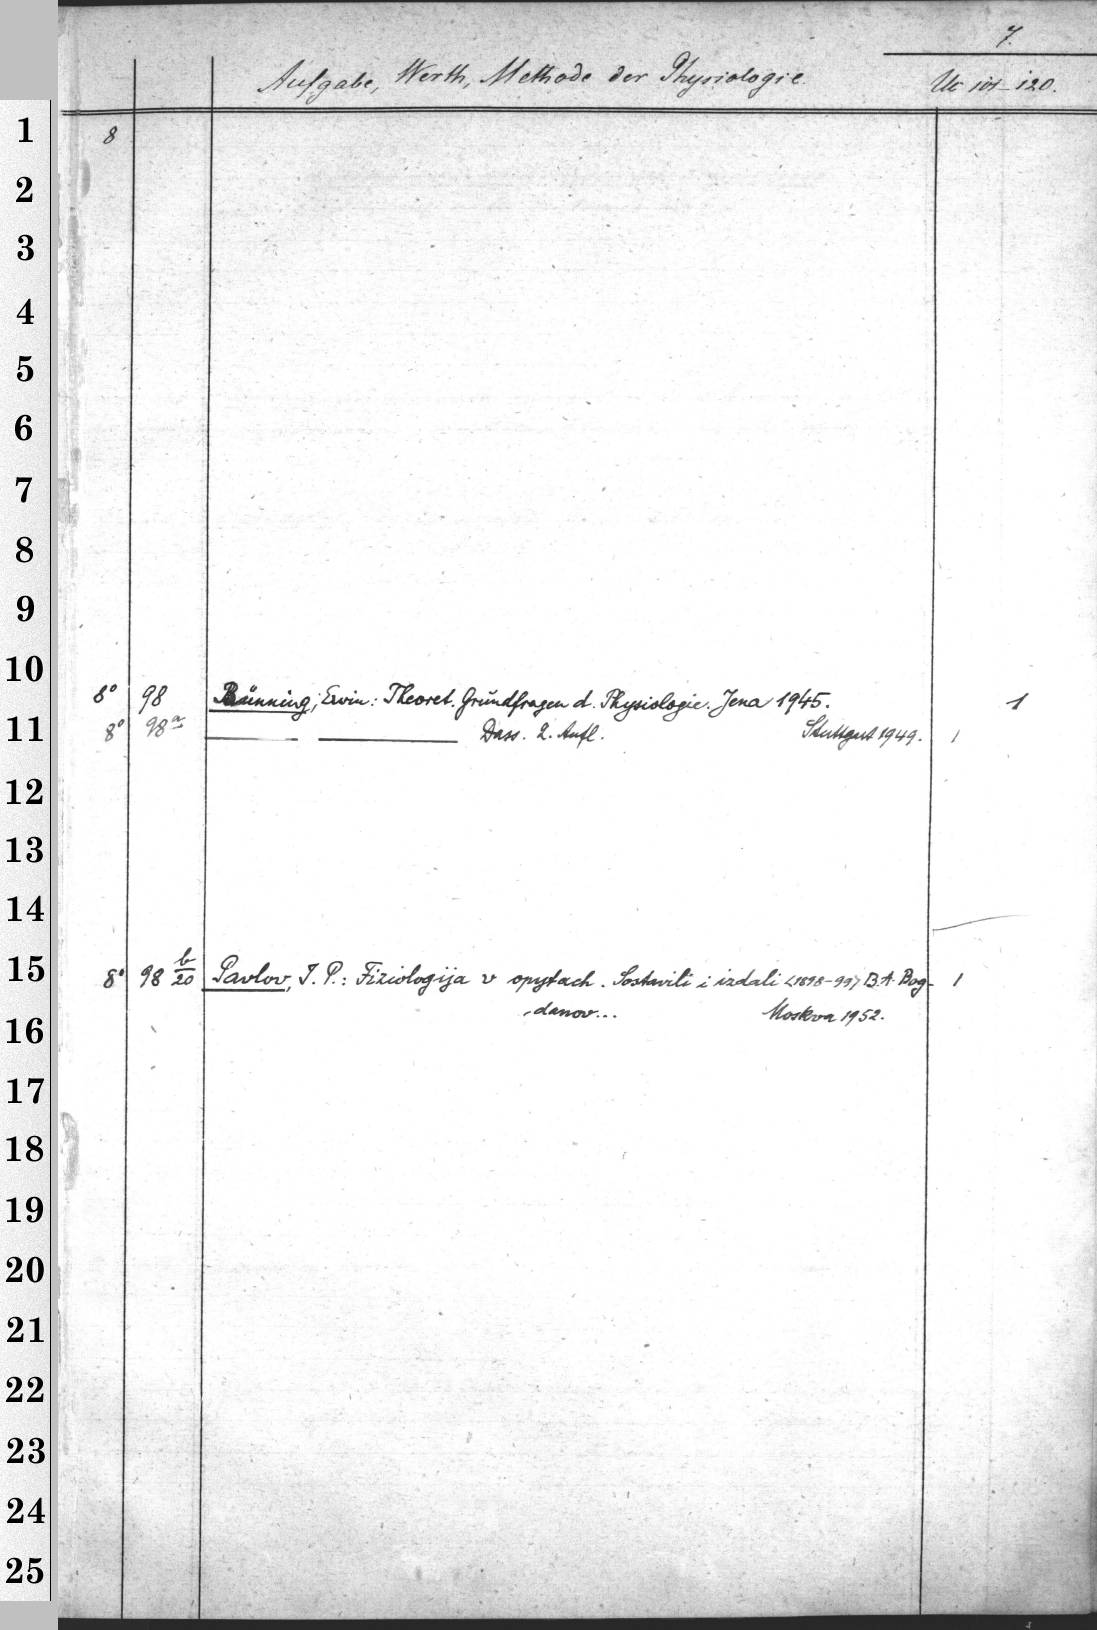 7.
Aufgabe, Werth, Methode der Physiologie Uc 101–120.
1 8
2
3
4
5
6
7
8
9
10
8° 98 Bünning, Erwin: Theoret. Grundfragen d. Physiologie. Jena 1945. 1
11 8° 98a Dass. 2. Aufl. Stuttgart 1949. 1
12
13
14
15 8° 98 b/20 Pavlov, I. P.: Fiziologija v opytach. Sostavili i izdali <1898-99> B. A. Bog-
danov... Moskva 1952. 1
16
17
18
19
20
21
22
23
24
25